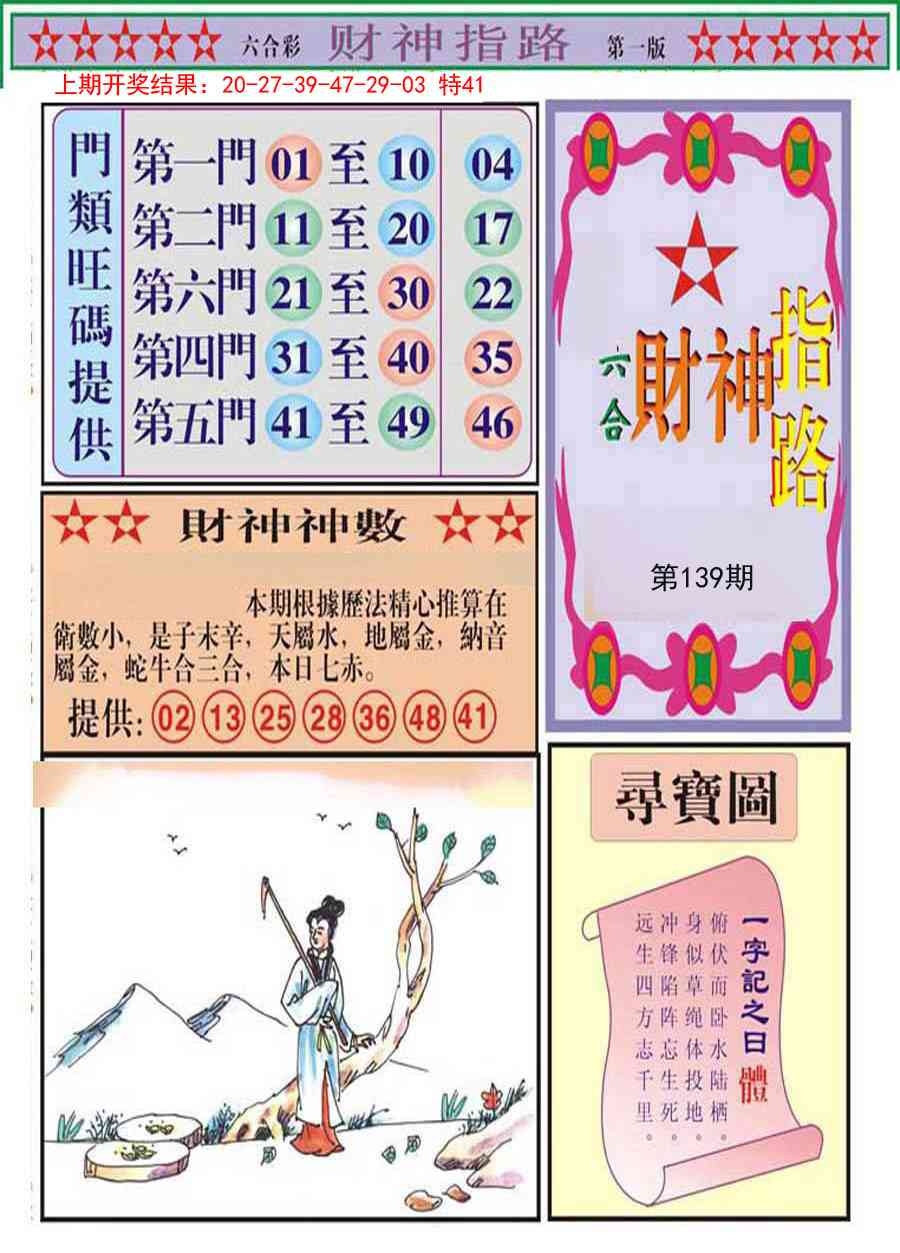 六合彩 财神指路 第一版
上期开奖结果：20-27-39-47-29-03 特41
門類旺碼提供
第一門 01 至 10 04
第二門 11 至 20 17
第六門 21 至 30 22
第四門 31 至 40 35
第五門 41 至 49 46
六合 財神 指路
第139期
財神神數
本期根據歷法精心推算在
衛數小，是子末辛，天屬水，地屬金，納音
屬金，蛇牛合三合，本日七赤。
提供: 02 13 25 28 36 48 41
尋寶圖
一字記之曰 體
俯伏而卧水陆栖。
身似草绳体投地。
冲锋陷阵忘生死。
远生四方志千里。